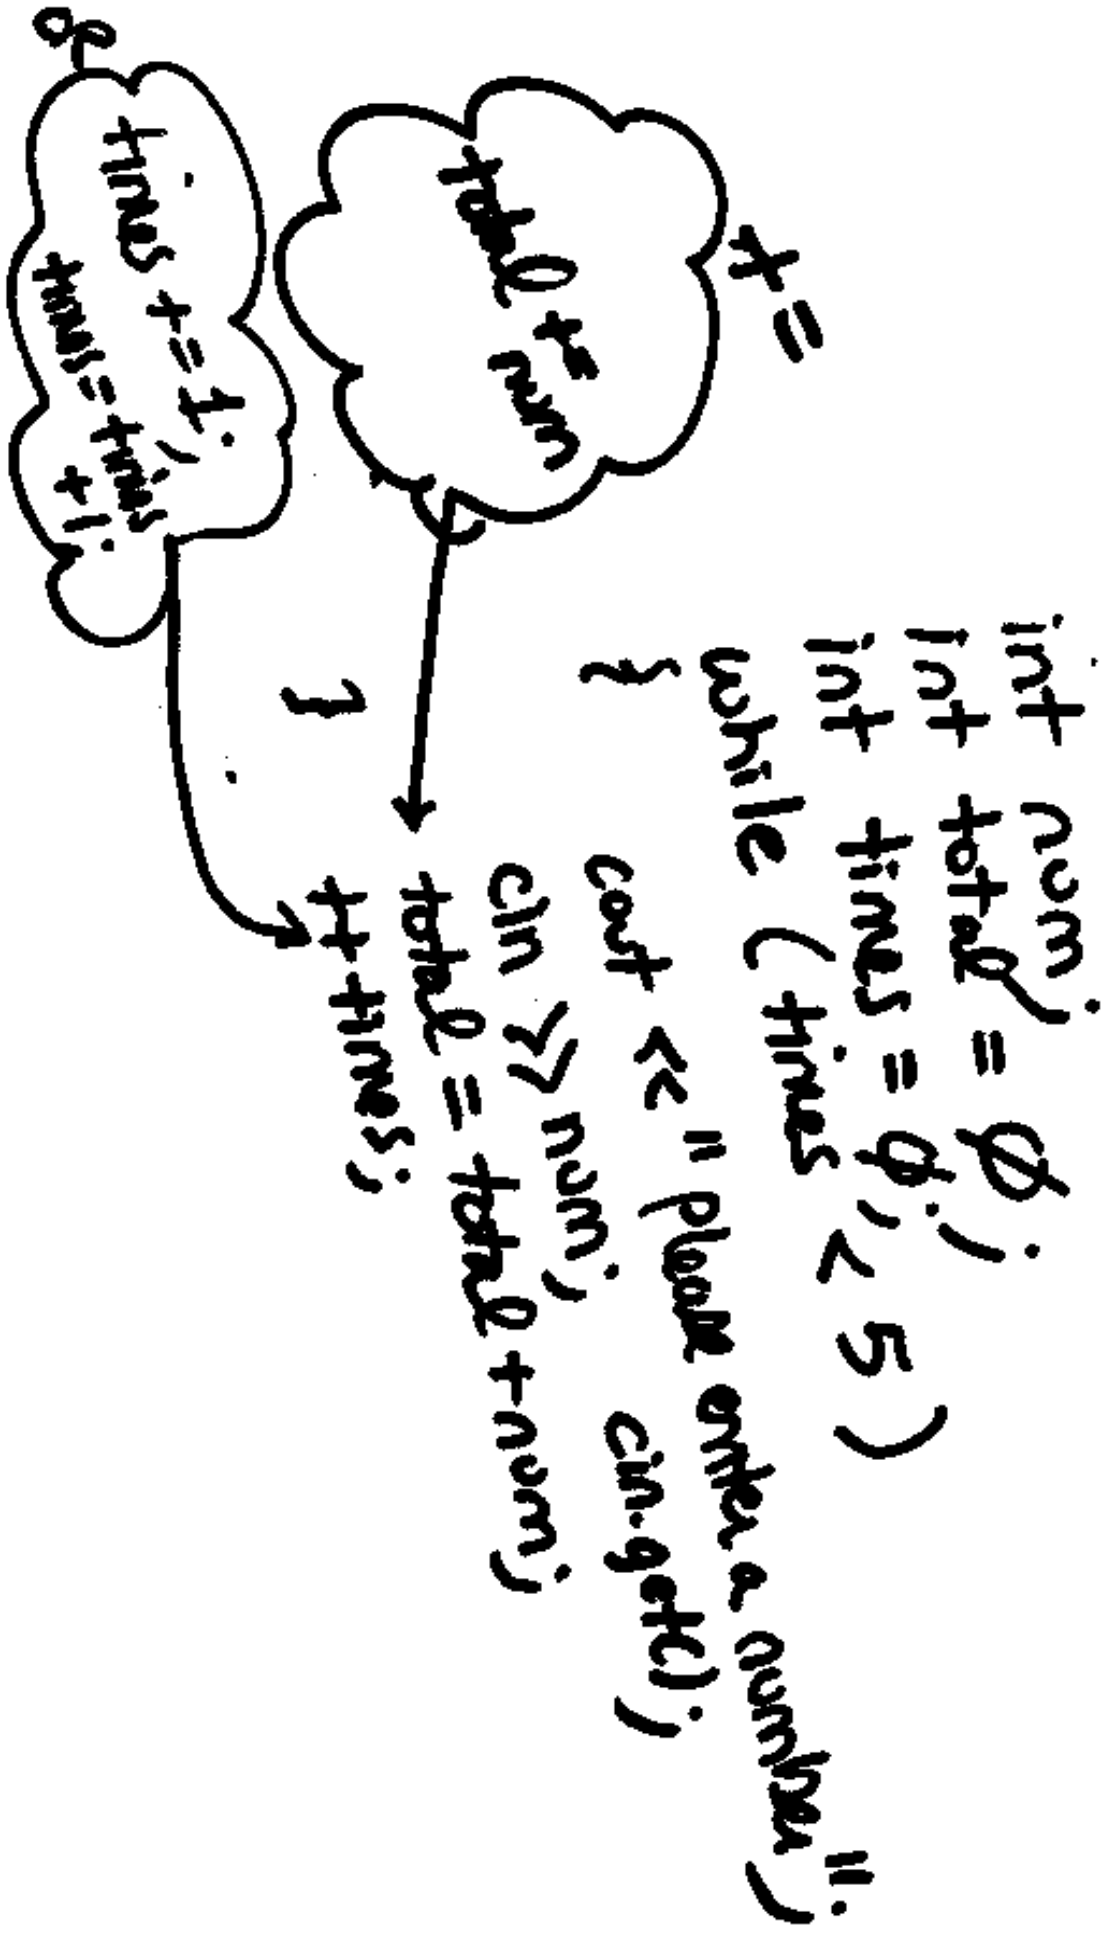 int num;
int total = 0;
int times = 0;
while (times < 5)
{
cout << "please enter a number";
cin >> num; cin.get();
total = total + num;
++times;
}
+=
total +=
num
or
times += 1;
times = times
+1;